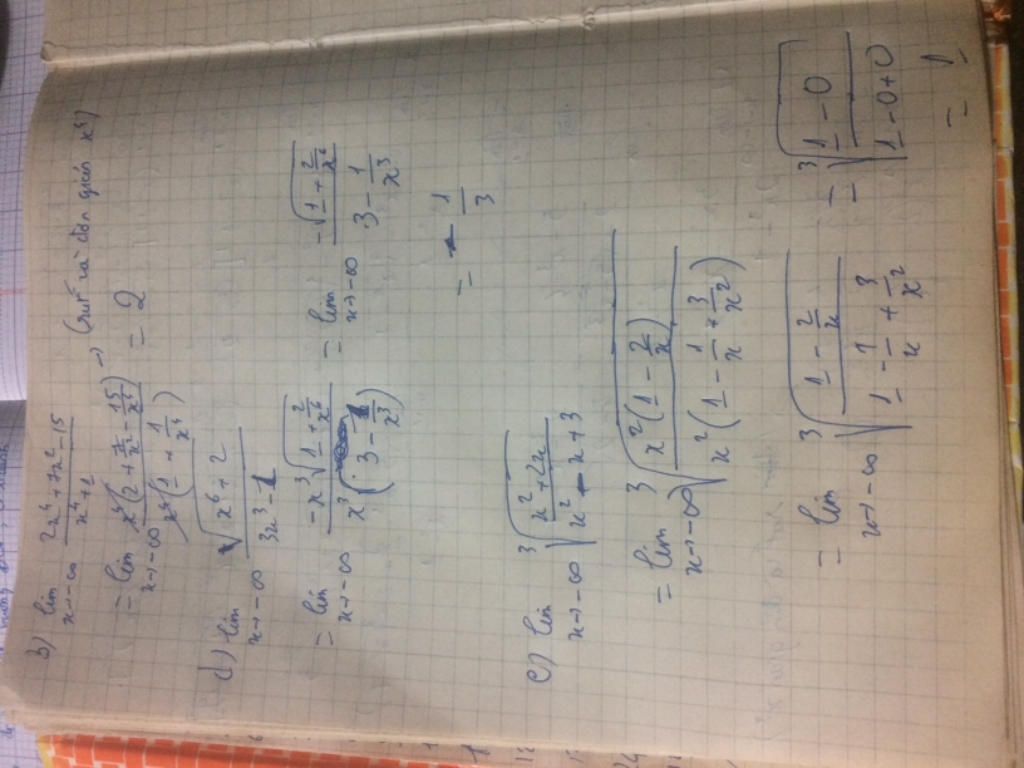 b) lim x→-∞ (2x⁴ + 7x² - 15)/(x⁴ + 1)
= lim x→-∞ x⁴(2 + 7/x² - 15/x⁴)/x⁴(1 + 1/x⁴) → (rút và đơn giản x⁴) = 2
d) lim x→-∞ √(x⁶ + 2)/(3x³ - 1)
= lim x→-∞ -x³√(1 + 2/x⁶)/x³(3 - 1/x³) = lim x→-∞ -√(1 + 2/x⁶)/(3 - 1/x³)
= - 1/3
e) lim x→-∞ ³√((x² + 2x)/(x² - x + 3))
= lim x→-∞ ³√(x²(1 - 2/x)/x²(1 - 1/x + 3/x²))
= lim x→-∞ ³√((1 - 2/x)/(1 - 1/x + 3/x²)) = ³√((1 - 0)/(1 - 0 + 0))
= 1